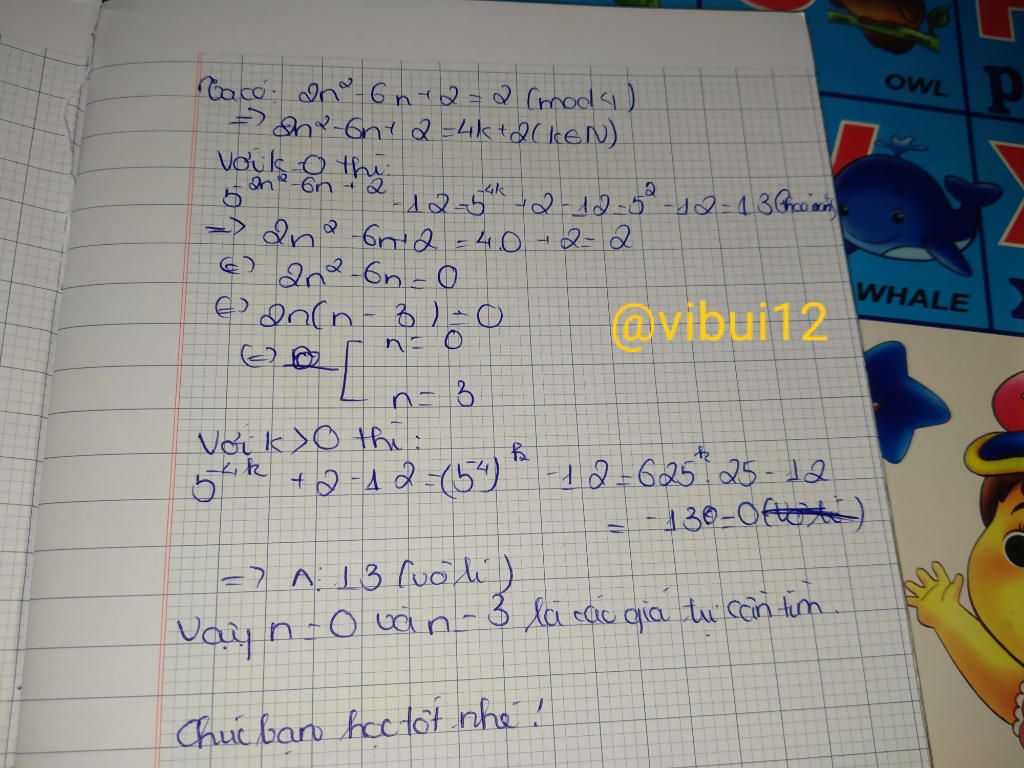 Ta có: 2n² - 6n + 2 = 2 (mod 4)
=> 2n² - 6n + 2 = 4k + 2 (k∈N)
Với k = 0 thì:
5^2n² - 6n + 2 - 12 = 5^4k + 2 - 12 = 5² - 12 = 13 (thoả mãn)
=> 2n² - 6n + 2 = 4.0 + 2 = 2
(=) 2n² - 6n = 0
(=) 2n(n - 3) = 0
(=) [ n = 0
n = 3
Với k > 0 thì:
5^4k + 2 - 12 = (5⁴)^k - 12 = 625^k . 25 - 12
= -130 = 0
=> n: 13 (vô lí)
Vậy n = 0 và n = 3 là các giá trị cần tìm.
Chúc bạn học tốt nhé!
@vibui12
OWL
p
WHALE